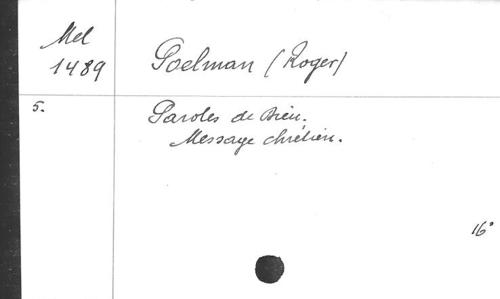 Mel
1489
Poelman (Roger)
5.
Paroles de Dieu.
Message chrétien.
16°